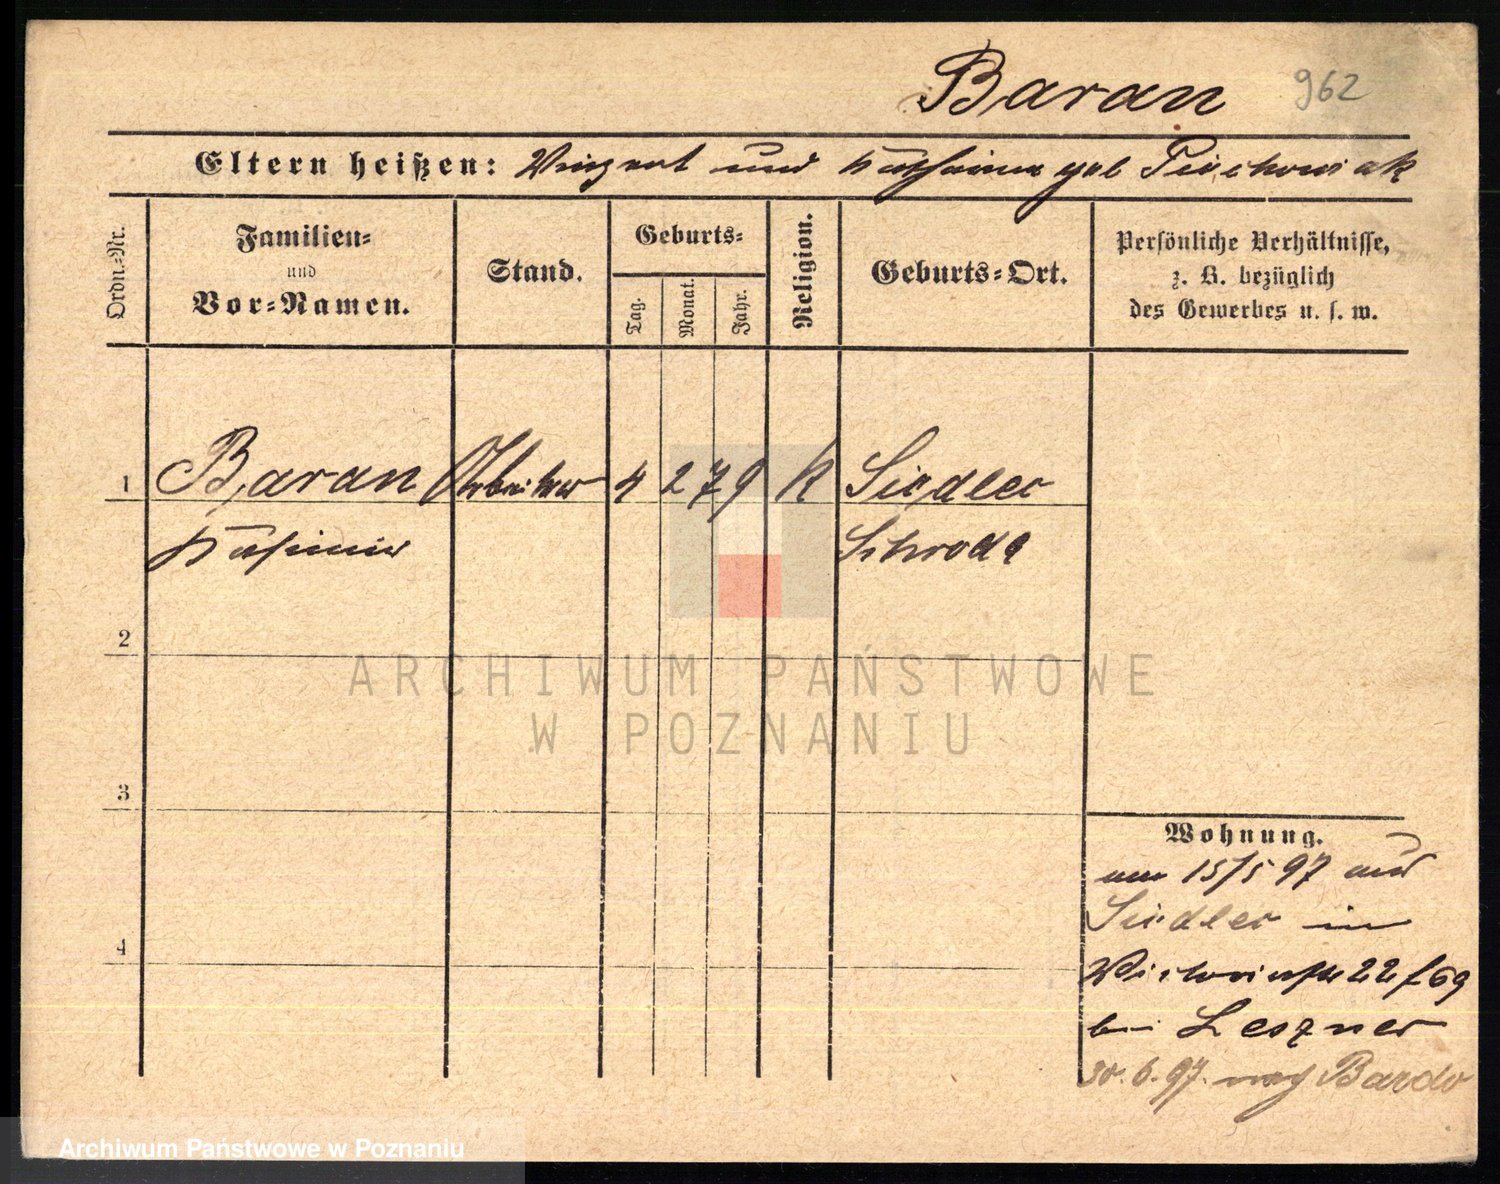 Baran 962
Eltern heißen: Vinzent und Katharina geb Piechowiak
Ordn.=Nr.
Familien=
und
Vor=Namen.
Stand.
Geburts=
Tag.
Monat.
Jahr.
Religion.
Geburts=Ort.
Persönliche Verhältnisse,
z. B. bezüglich
des Gewerbes u. s. w.
1 Baran Arbeiter 4 2 79 K Siedlec
Kasimir Schroda
2
3
4
Wohnung.
am 15/5 97 aus
Siedlec in
Victoriastr 22 f 69
bei Leszner
30. 6. 97. nach Bardo
ARCHIWUM PAŃSTWOWE
W POZNANIU
Archiwum Państwowe w Poznaniu